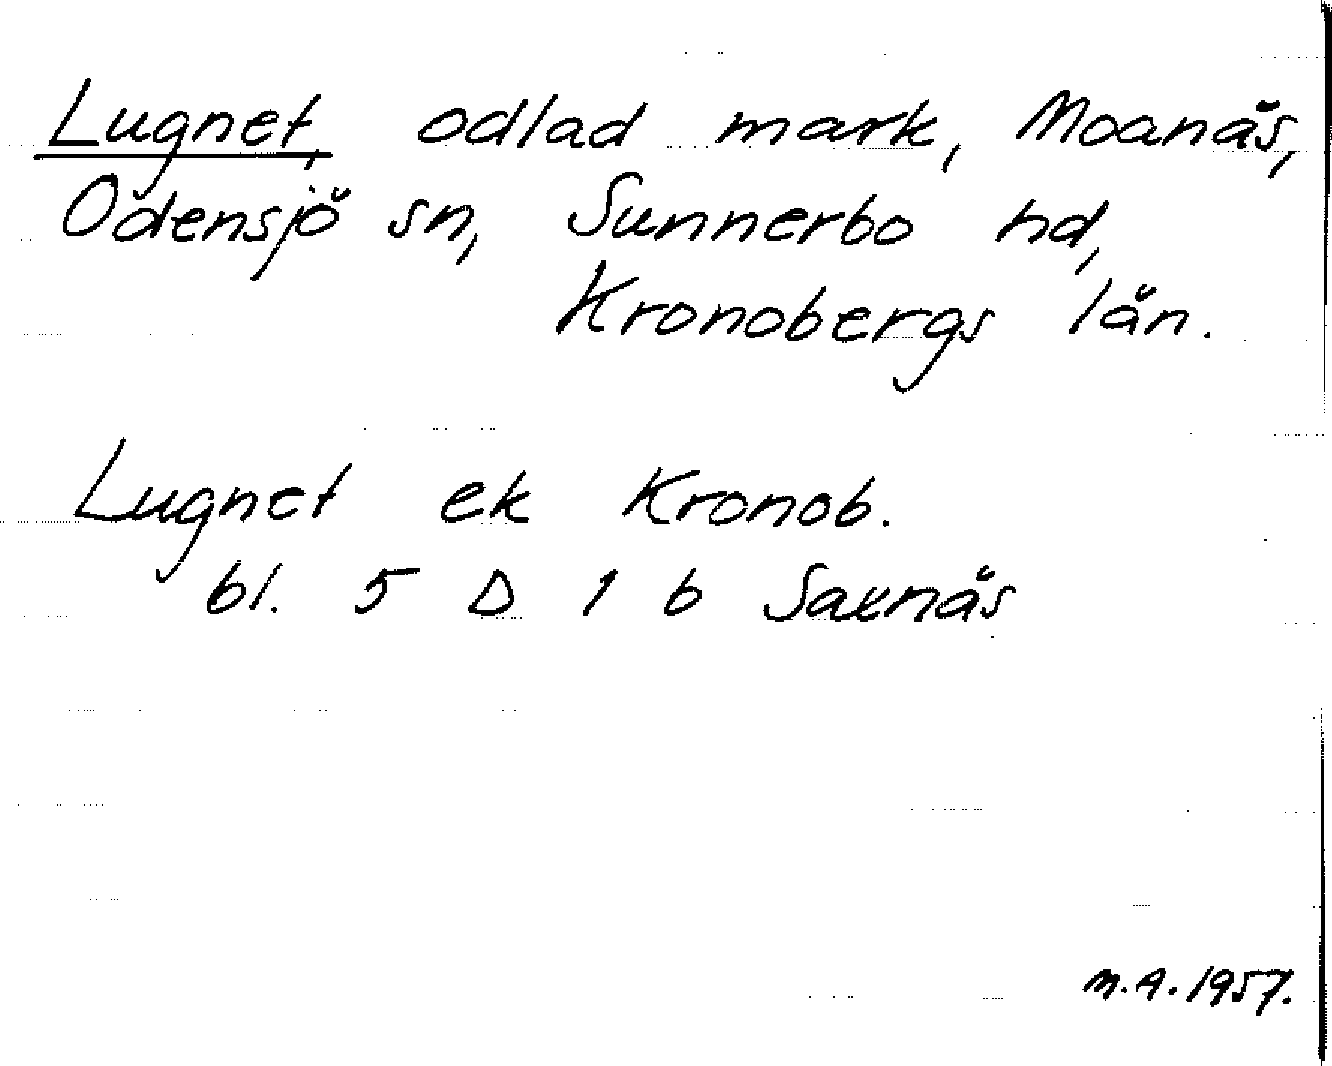 Lugnet, odlad mark, Moanäs,
Odensjö sn, Sunnerbo hd,
Kronobergs län.
Lugnet ek Kronob.
bl. 5 D 1 b Saxnäs
M.A. 1957.